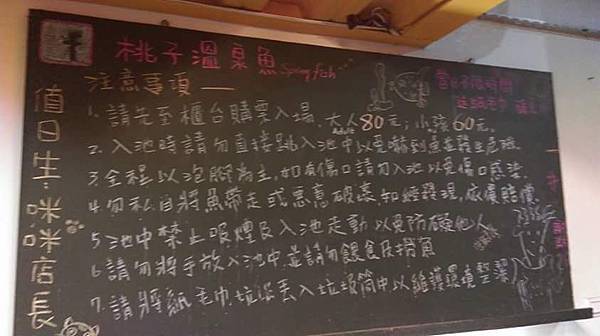 桃子溫泉魚 Spring fish
注意事項
1. 請先至櫃台購票入場. 大人80元; 小孩60元.
Adult
2. 入池時請勿直接跳入池中以免嚇到魚
3. 全程以泡腳為主, 如有傷口請勿入池以免傷口感染.
4. 勿私自將魚帶走或惡意破壞, 如經發現, 依價賠償.
5. 池中禁止吸煙及入池走動以免妨礙他人
6. 請勿將手放入池中並請勿餵食及撈魚
7. 請將紙毛巾垃圾丟入垃圾筒中以維護環境整潔
當日不限時間
值日生:咪咪店長